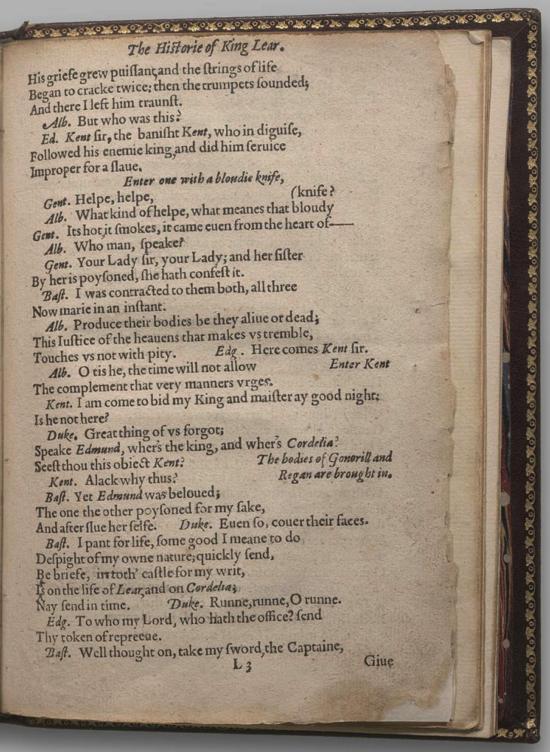 The Historie of King Lear.
His griefe grew puissant, and the strings of life
Began to cracke twice; then the trumpets sounded,
And there I left him traunst.
Alb. But who was this?
Ed. Kent sir, the banisht Kent, who in diguise,
Followed his enemie king, and did him seruice
Improper for a slaue.
Enter one with a bloudie knife,
Gent. Helpe, helpe, (knife?
Alb. What kind of helpe, what meanes that bloudy
Gent. Its hot, it smokes, it came euen from the heart of——
Alb. Who man, speake?
Gent. Your Lady sir, your Lady; and her sister
By her is poysoned, she hath confest it.
Bast. I was contracted to them both, all three
Now marie in an instant.
Alb. Produce their bodies be they aliue or dead;
This Iustice of the heauens that makes vs tremble,
Touches vs not with pity. Edg. Here comes Kent sir.
Alb. O tis he, the time will not allow Enter Kent
The complement that very manners vrges.
Kent. I am come to bid my King and maister ay good night;
Is he not here?
Duke. Great thing of vs forgot;
Speake Edmund, wher's the king, and wher's Cordelia?
Seest thou this obiect Kent? The bodies of Gonorill and
Kent. Alack why thus? Regan are brought in.
Bast. Yet Edmund was beloued;
The one the other poysoned for my sake,
And after slue her selfe. Duke. Euen so, couer their faces.
Bast. I pant for life, some good I meane to do
Despight of my owne nature; quickly send,
Be briefe, intoth' castle for my writ,
Is on the life of Lear, and on Cordelia;
Nay send in time. Duke. Runne, runne, O runne.
Edg. To who my Lord, who hath the office? send
Thy token of repreeue.
Bast. Well thought on, take my sword, the Captaine,
L 3 Giue